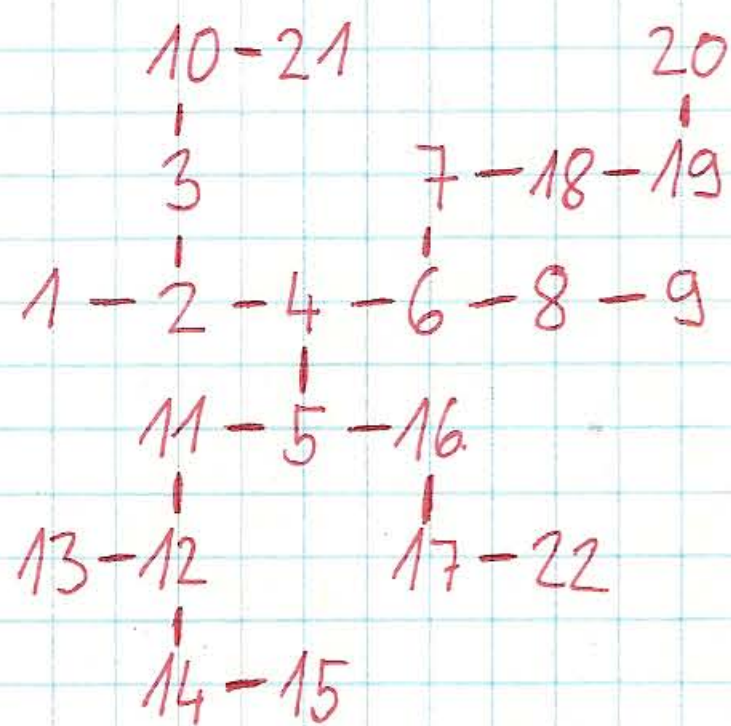 10-21 20
3 7-18-19
1-2-4-6-8-9
11-5-16
13-12 17-22
14-15